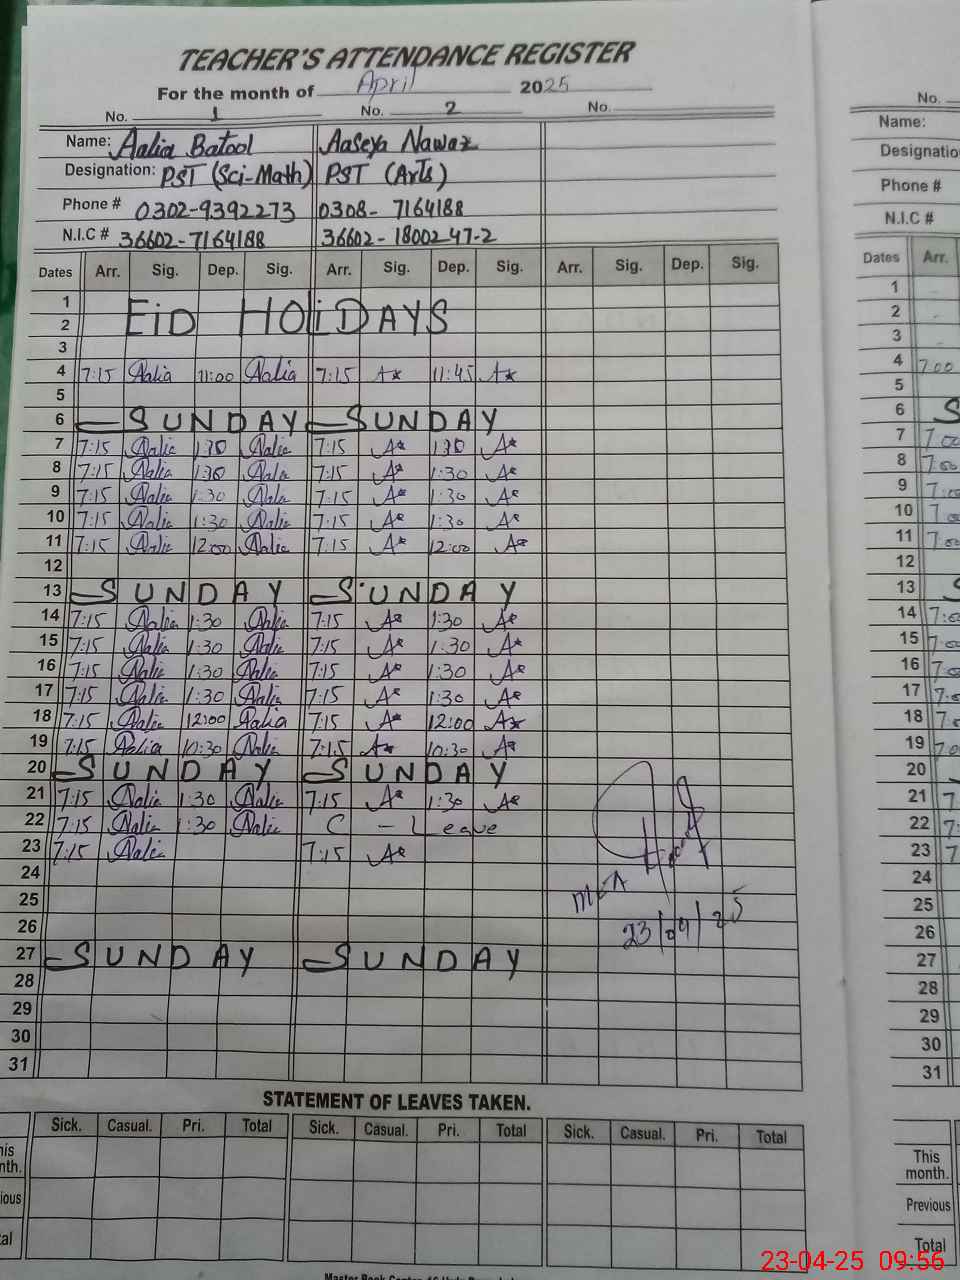 TEACHER'S ATTENDANCE REGISTER
For the month of April 2025
No. 1 No. 2 No.
Name: Aalia Batool Aaseya Nawaz
Designation: PST (Sci-Math) PST (Arts)
Phone # 0302-9392273 0308-7164188
N.I.C # 36602-7164188 36602-1800247-2
Dates Arr. Sig. Dep. Sig. Arr. Sig. Dep. Sig. Arr. Sig. Dep. Sig.
1
2 EiD HOLiDAYS
3
4 7:15 Aalia 11:00 Aalia 7:15 A* 11:45 A*
5
6 SUNDAY SUNDAY
7 7:15 Aalia 1:30 Aalia 7:15 A* 1:30 A*
8 7:15 Aalia 1:30 Aalia 7:15 A* 1:30 A*
9 7:15 Aalia 1:30 Aalia 7:15 A* 1:30 A*
10 7:15 Aalia 1:30 Aalia 7:15 A* 1:30 A*
11 7:15 Aalia 12:00 Aalia 7:15 A* 12:00 A*
12
13 SUNDAY SUNDAY
14 7:15 Aalia 1:30 Aalia 7:15 A* 1:30 A*
15 7:15 Aalia 1:30 Aalia 7:15 A* 1:30 A*
16 7:15 Aalia 1:30 Aalia 7:15 A* 1:30 A*
17 7:15 Aalia 1:30 Aalia 7:15 A* 1:30 A*
18 7:15 Aalia 12:00 Aalia 7:15 A* 12:00 A*
19 7:15 Aalia 10:30 Aalia 7:15 A* 10:30 A*
20 SUNDAY SUNDAY
21 7:15 Aalia 1:30 Aalia 7:15 A* 1:30 A*
22 7:15 Aalia 1:30 Aalia C - Leave
23 7:15 Aalia 7:15 A*
24
25 MEA
26 23/04/25
27 SUNDAY SUNDAY
28
29
30
31
STATEMENT OF LEAVES TAKEN.
Sick. Casual. Pri. Total Sick. Casual. Pri. Total Sick. Casual. Pri. Total
No.
Name:
Designatio
Phone #
N.I.C #
Dates Arr.
1
2
3
4 7:00
5
6 S
7 7:00
8 7:00
9 7:00
10 7:0
11 7:00
12
13 S
14 7:00
15 7:00
16 7:00
17 7:0
18 7:0
19 7:0
20
21 7
22 7:
23 7
24
25
26
27
28
29
30
31
This month.
Previous
Total
23-04-25 09:56